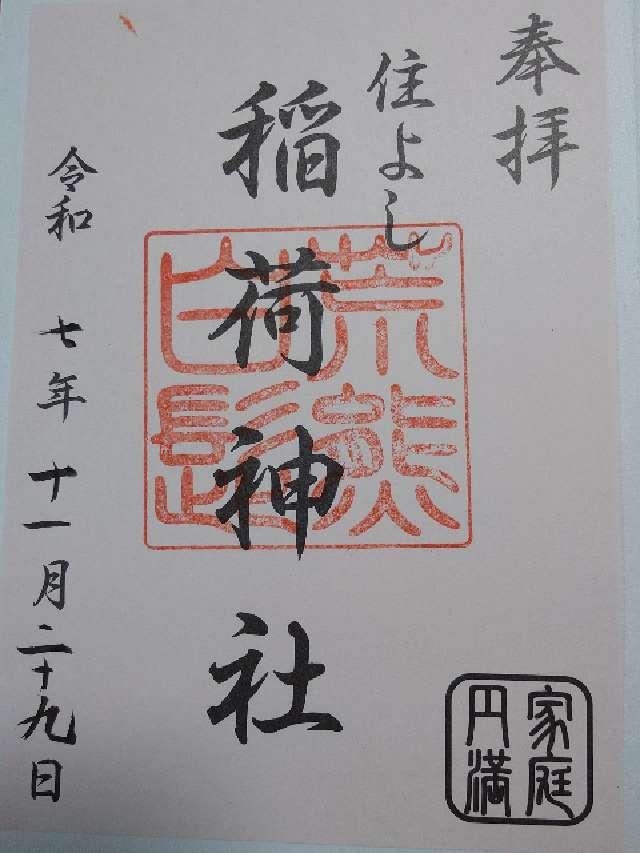 奉拝
住よし
稲荷神社
荒熊
白髭
令和 七年 十一月二十九日
家庭
円満